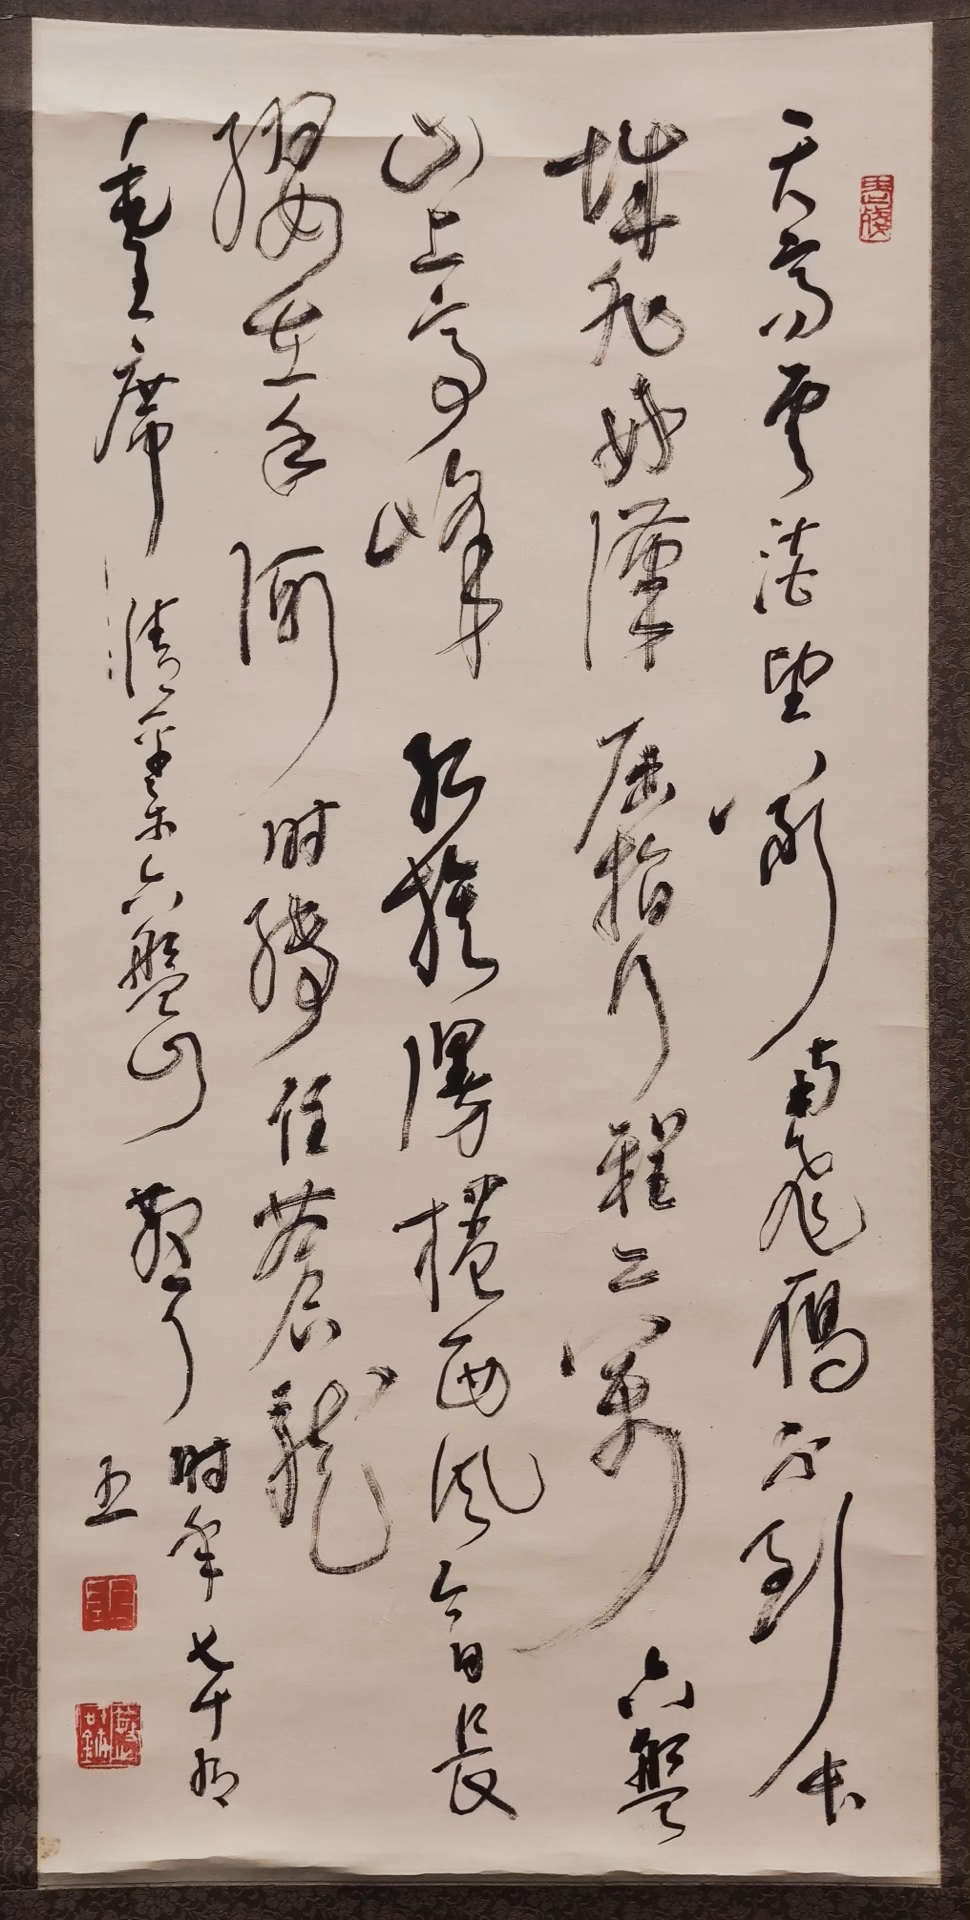 天高雲淡望斷南飛鴈不到長
城非好漢屈指行程二萬六盤
山上高峰紅旗漫捲西風今日長
纓在手何时縛住蒼龍
毛主席清平樂六盤山
时年七十
五